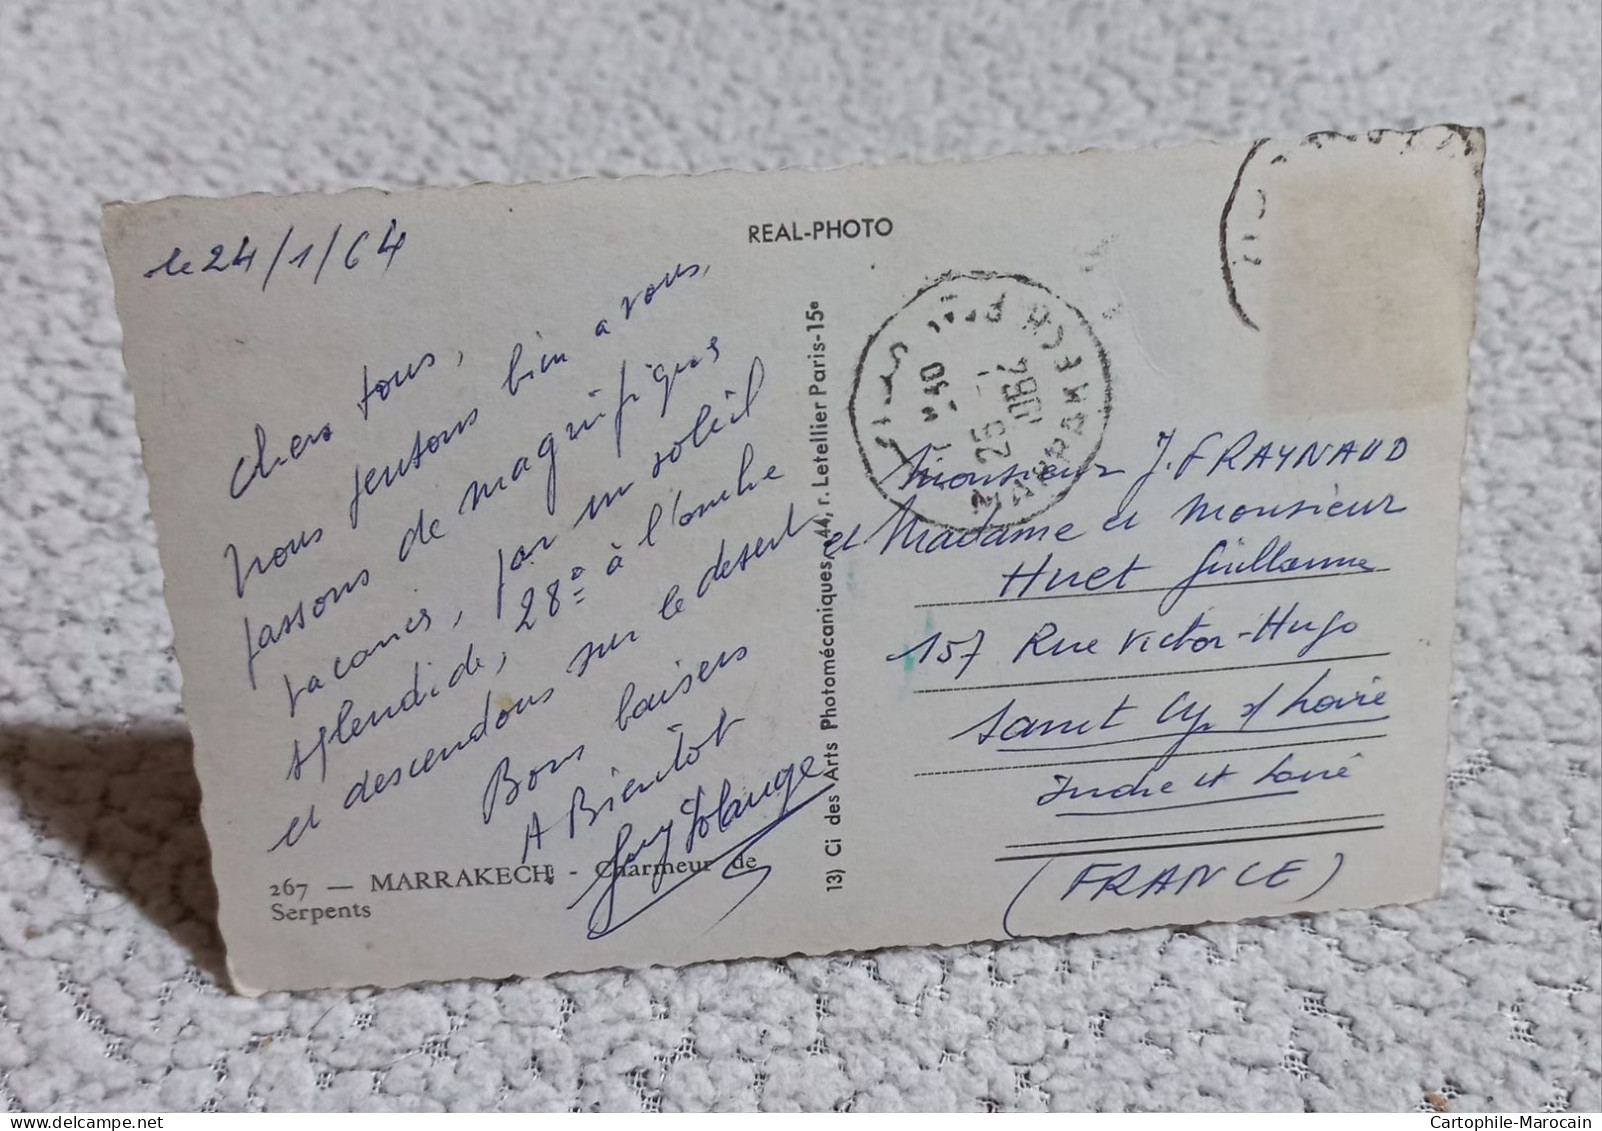 le 24/1/64
REAL-PHOTO
Chers tous,
nous pensons bien a vous,
passons de magnifiques
vacances, par un soleil
splendide, 28° à l'ombre
et descendons sur le desert
Bons baisers
A Bientôt
Guy Solange
267 — MARRAKECH - Charmeur de
Serpents
13) Ci des Arts Photomécaniques, 44, r. Letellier Paris-15e
MARRAKECH
25 -1
1964
Monsieur J. F RAYNAUD
et Madame et Monsieur
Huet Guillaume
157 Rue Victor-Hugo
Saint Cyr s/ Loire
Indre et Loire
(FRANCE)
Cartophile-Marocain